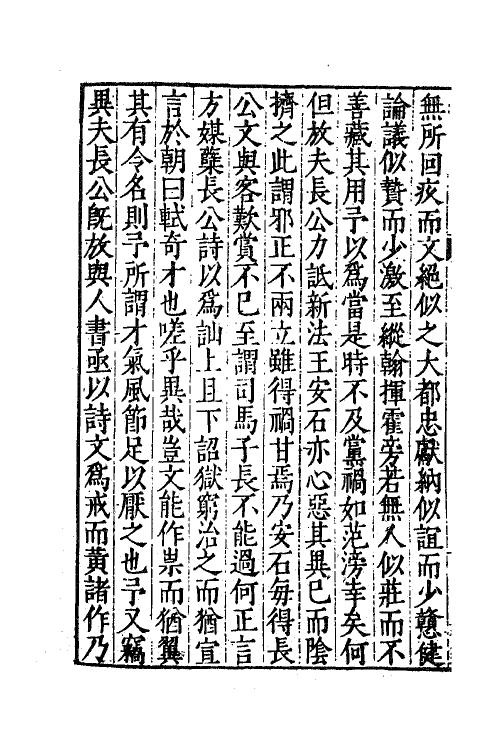 無所回疚而文絕似之大都忠獻納似誼而少戇健
論議似贄而少激至縱翰揮霍旁若無人似莊而不
善藏其用予以為當是時不及黨禍如范滂幸矣何
但放夫長公力詆新法王安石亦心惡其異已而陰
擠之此謂邪正不兩立雖得禍甘焉乃安石每得長
公文與客歎賞不已至謂司馬子長不能過何正言
方媒糵長公詩以為訕上且下詔獄窮治之而猶宣
言於朝曰軾奇才也嗟乎異哉豈文能作祟而猶翼
其有令名則予所謂才氣風節足以厭之也予又竊
異夫長公旣放與人書亟以詩文為戒而黃諸作乃